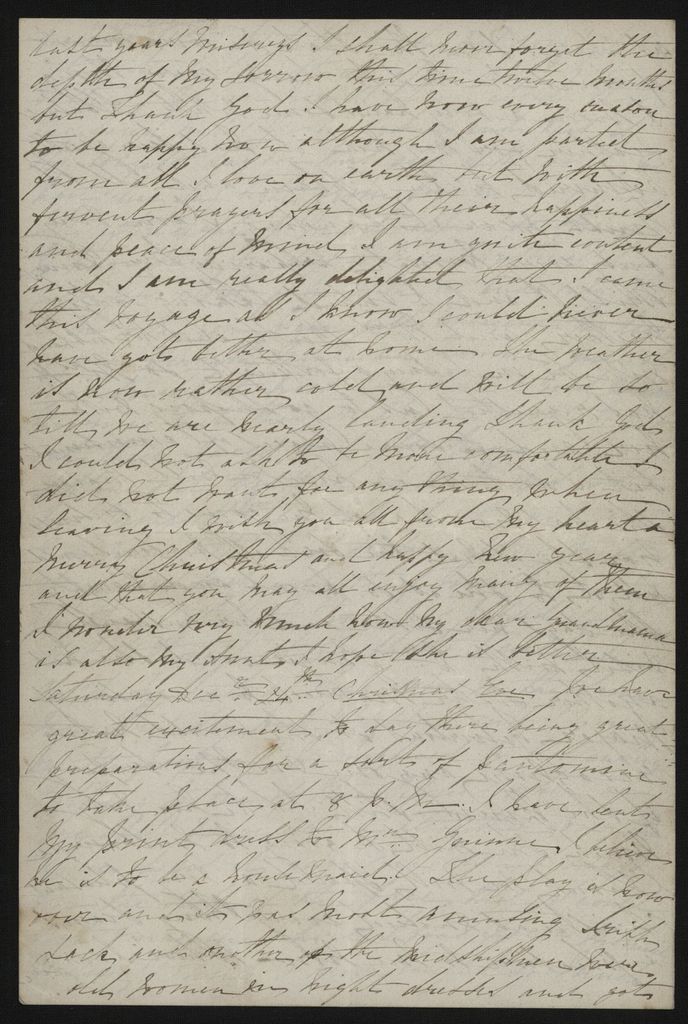 last years miserys I shall never forget the
depth of my sorrow this time twelve months
but thank God I have now every reason
to be happy now although I am parted
from all I love on earth but with
fervent prayers for all their happiness
and peace of mind I am quite content
and I am really delighted that I came
this voyage as I know I could never
have got better at home The weather
is now rather cold and will be so
till we are nearly landing thank God
I could not ask to be more comfortable I
did not want for any thing when
leaving I wish you all from my heart a
merry Christmas and happy New year
and that you may all enjoy many of them
I wonder very much how my dear Grandmama
is also my Aunt I hope she is better
Saturday Dec 24th Christmas Eve We have
great excitement to day there being great
preparations for a sort of pantomime
to take place at 8 P. M. I have lent
my print dress to Mr I believe
he is to be a housemaid The play is now
over and it was most amusing
Jack and another of the midshipmen were
old women in night dresses and got